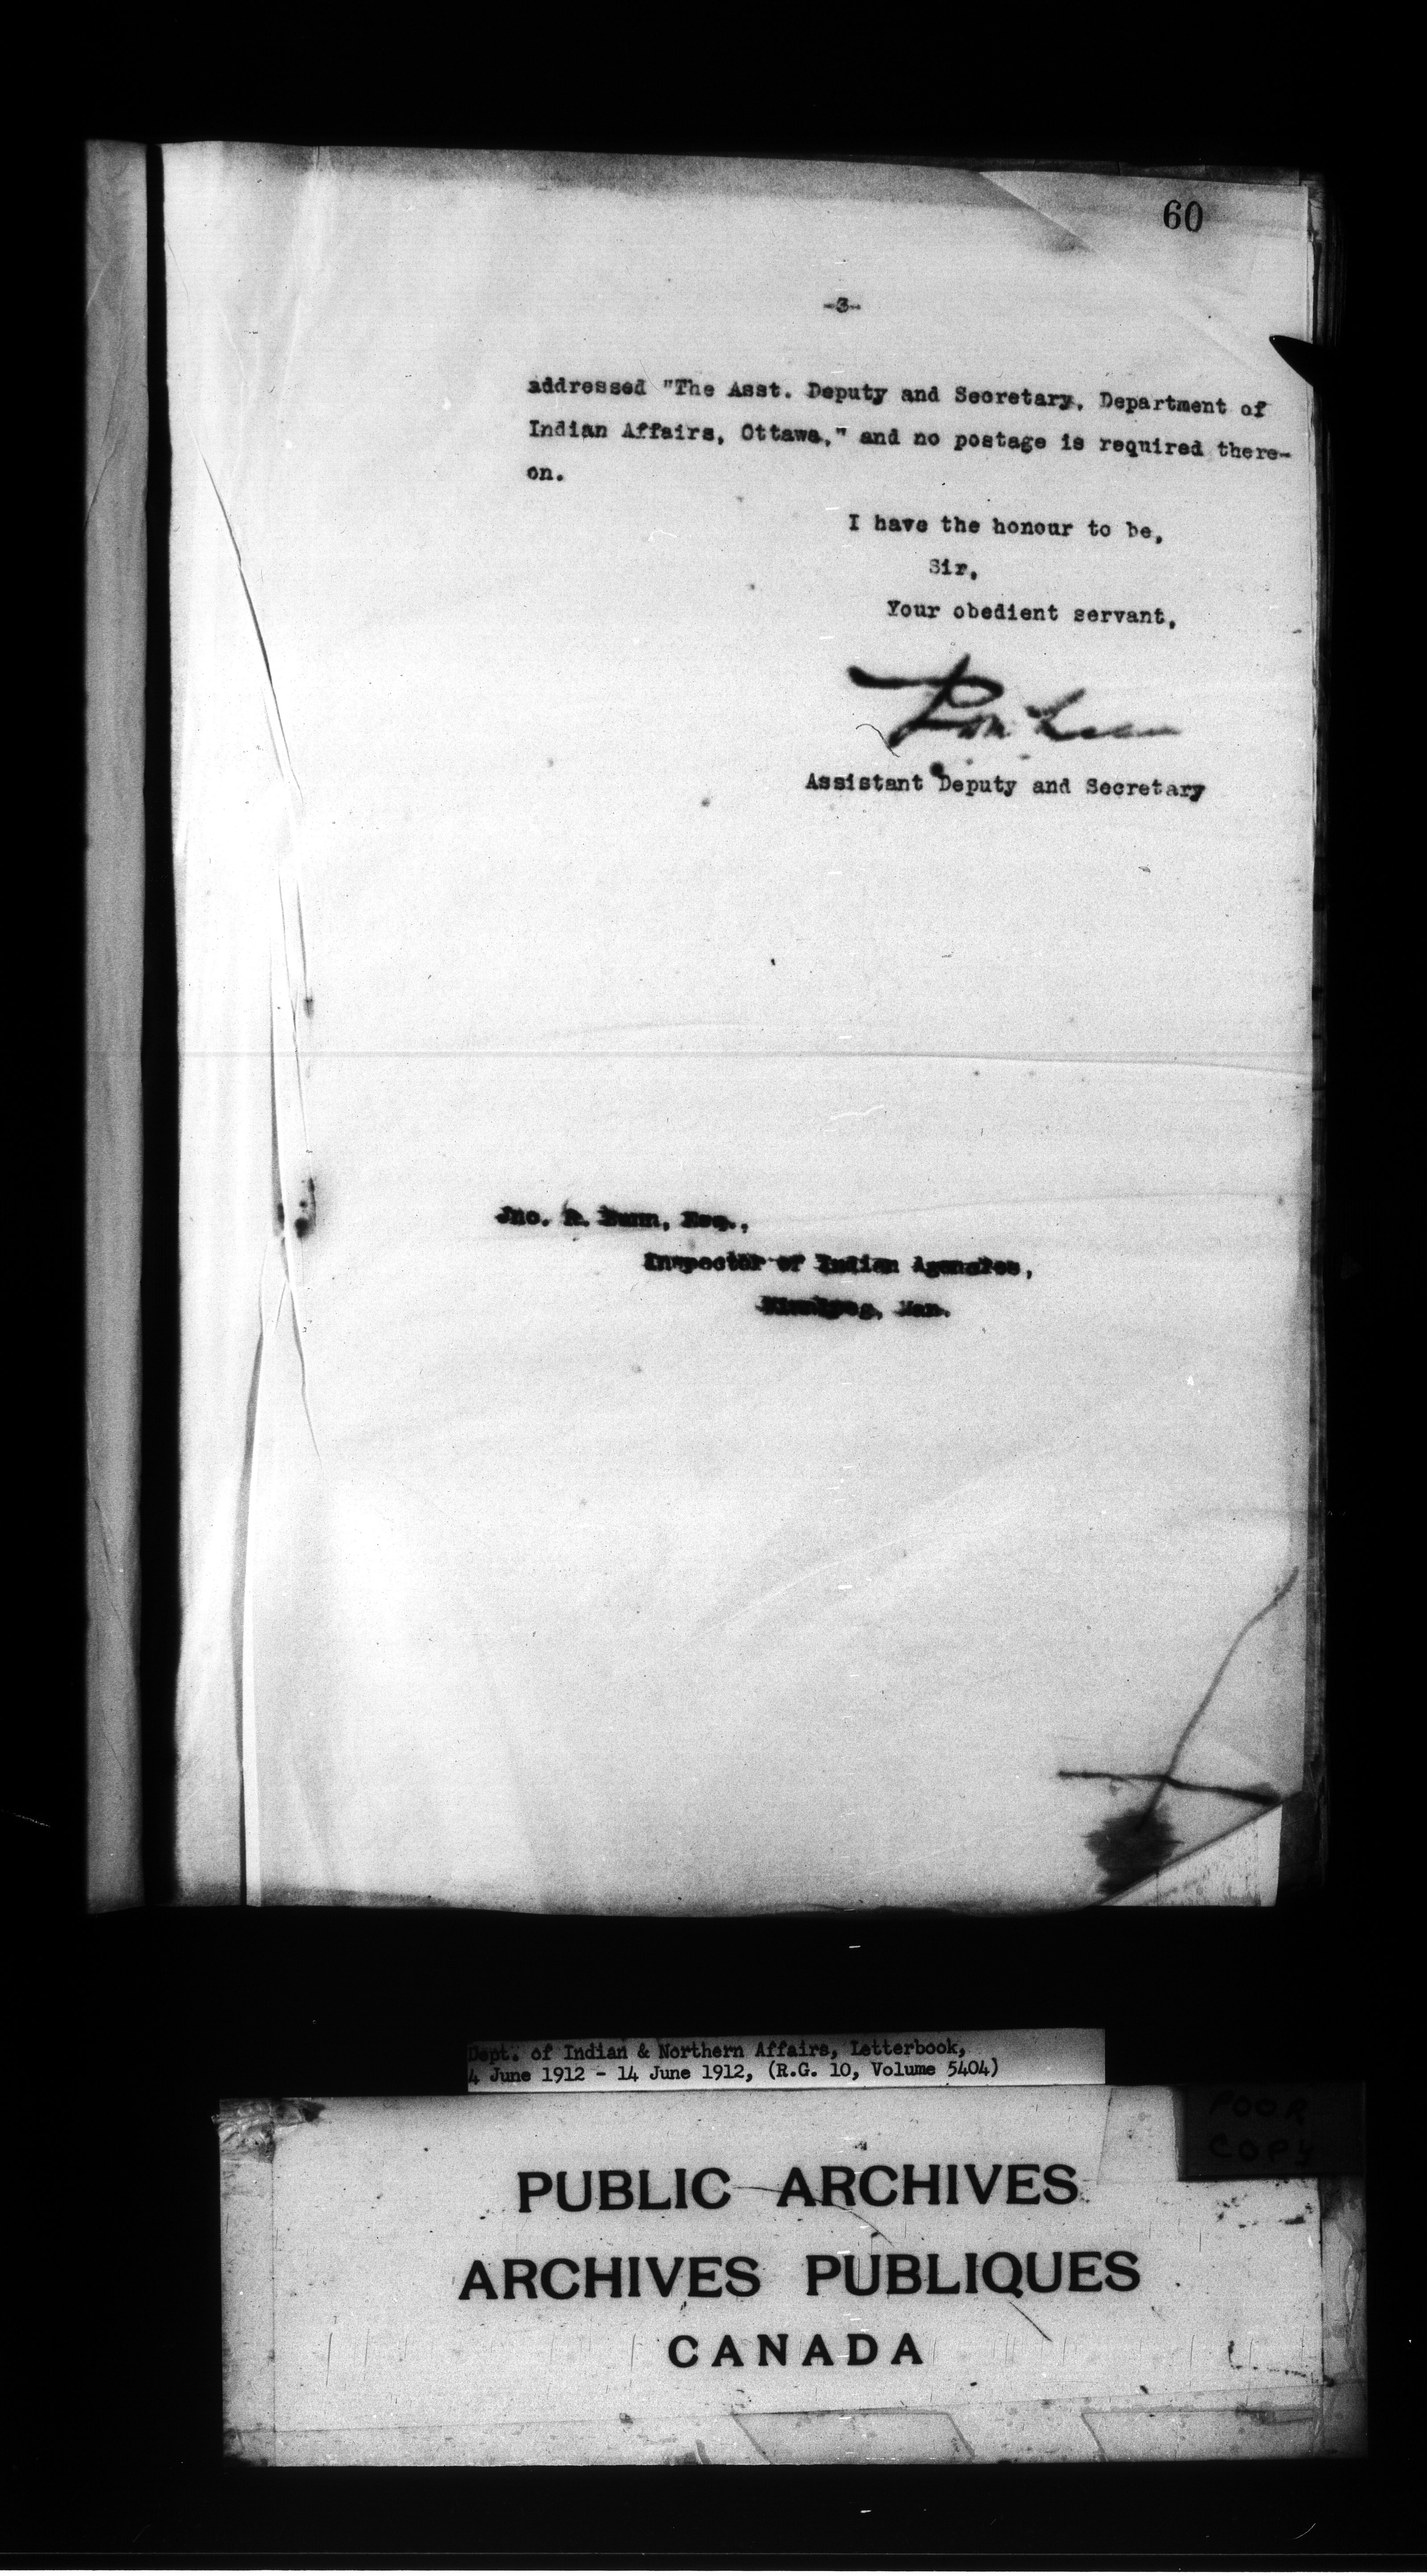 60
-3-
addressed "The Asst. Deputy and Secretary, Department of
Indian Affairs, Ottawa," and no postage is required there-
on.
I have the honour to be,
Sir,
Your obedient servant,
Assistant Deputy and Secretary
Jno. R. Bunn, Esq.,
Inspector of Indian Agencies,
Winnipeg, Man.
Dept. of Indian & Northern Affairs, Letterbook,
4 June 1912 - 14 June 1912, (R.G. 10, Volume 5404)
POOR
COPY
PUBLIC ARCHIVES
ARCHIVES PUBLIQUES
CANADA